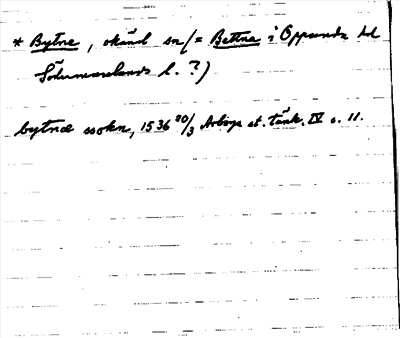 * Bytne, okänd sn (= Bettna i Oppunda hd
Södermanlands l. ?)
bytnæ sokn, 1536 20/3 Arboga st. tänk. IV s. 11.